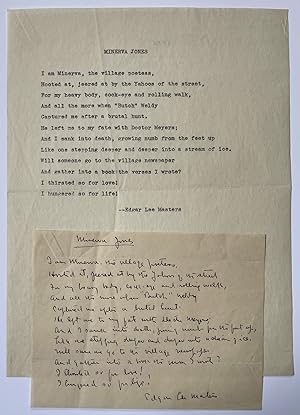 MINERVA JONES
I am Minerva, the village poetess,
Hooted at, jeered at by the Yahoos of the street,
For my heavy body, cock-eye and rolling walk,
And all the more when "Butch" Weldy
Captured me after a brutal hunt.
He left me to my fate with Doctor Meyers;
And I sank into death, growing numb from the feet up
Like one stepping deeper and deeper into a stream of ice.
Will someone go to the village newspaper
And gather into a book the verses I wrote?
I thirsted so for love!
I hungered so for life!
--Edgar Lee Masters
Minerva Jones
I am Minerva, the village poetess,
Hooted at, jeered at by the Yahoos of the street
For my heavy body, cock-eye and rolling walk,
And all the more when "Butch" Weldy
Captured me after a brutal hunt.
He left me to my fate with Doctor Meyers;
And I sank into death, growing numb from the feet up,
Like one stepping deeper and deeper into a stream of ice.
Will some one go to the village newspaper
And gather into a book the verses I wrote?
I thirsted so for love!
I hungered so for life!
Edgar Lee Masters